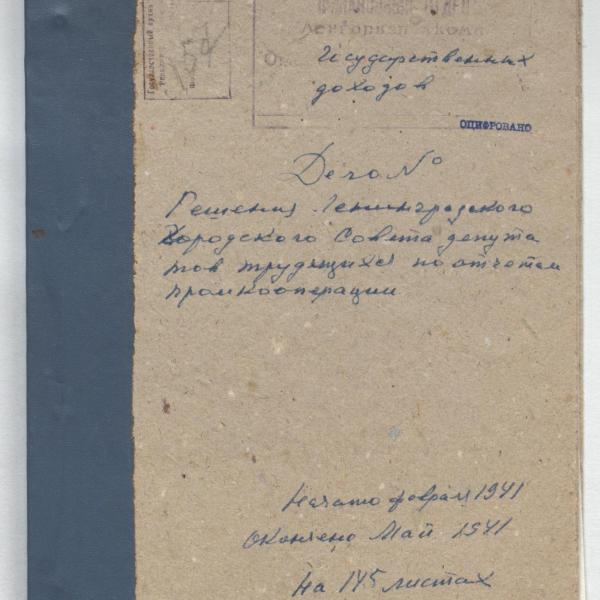 Государственный архив
157
ФИНАНСОВЫЙ ОТДЕЛ
Ленгорисполкома
Государственных
доходов
ОЦИФРОВАНО
Дело №
Решения Ленинградского
Городского Совета депута
тов трудящихся по отчетам
промкооперации
Начато февраля 1941
Окончено Май 1941
на 145 листах